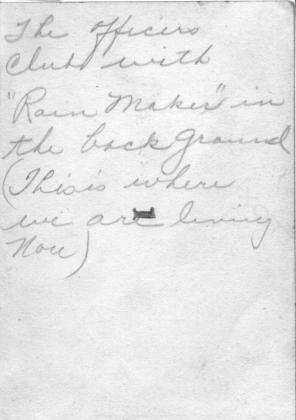 The officers
Club with
"Rain Maker" in
the back ground
(This is where
we are living
Now)